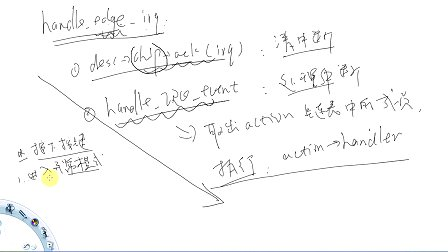 handle_edge_irq:
① desc→chip→ack(irq) : 清中断
② handle_IRQ_event : 处理中断
⇒ 取出action链表中的成员,
执行: action→handler
a. 按下按键
1. 进入异常模式